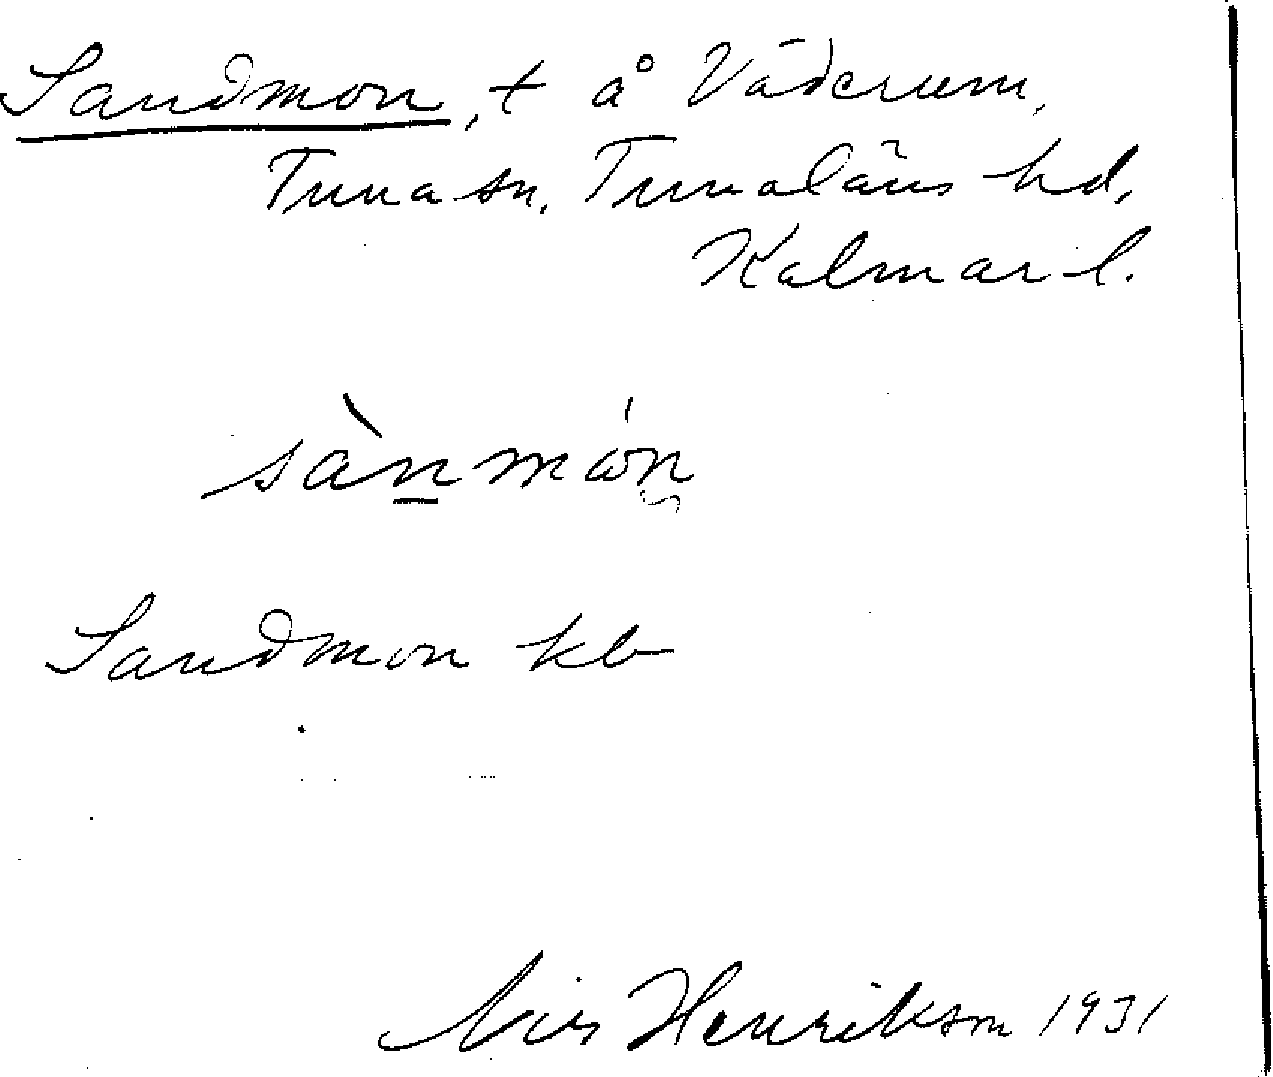 Sandmon, t å Väderum,
Tuna sn. Tunaläns hd.
Kalmar l.
sànmón
Sandmon kb
Henrikson 1931